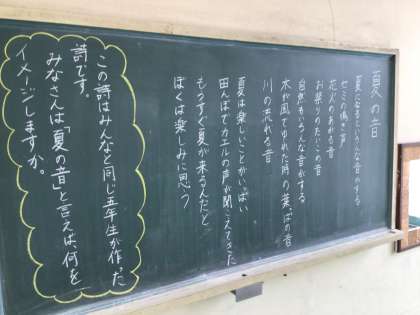 夏の音
夏になるといろんな音がする
セミの鳴き声
花火のあがる音
お祭りのたいこの音
自然もいろんな音がする
木が風でゆれた時の葉っぱの音
川の流れる音
夏は楽しいことがいっぱい
田んぼでカエルの声が聞こえてきた
もうすぐ夏が来るんだと
ぼくは楽しみに思う
この詩はみんなと同じ五年生が作った
詩です。
みなさんは「夏の音」と言えば、何を
イメージしますか。